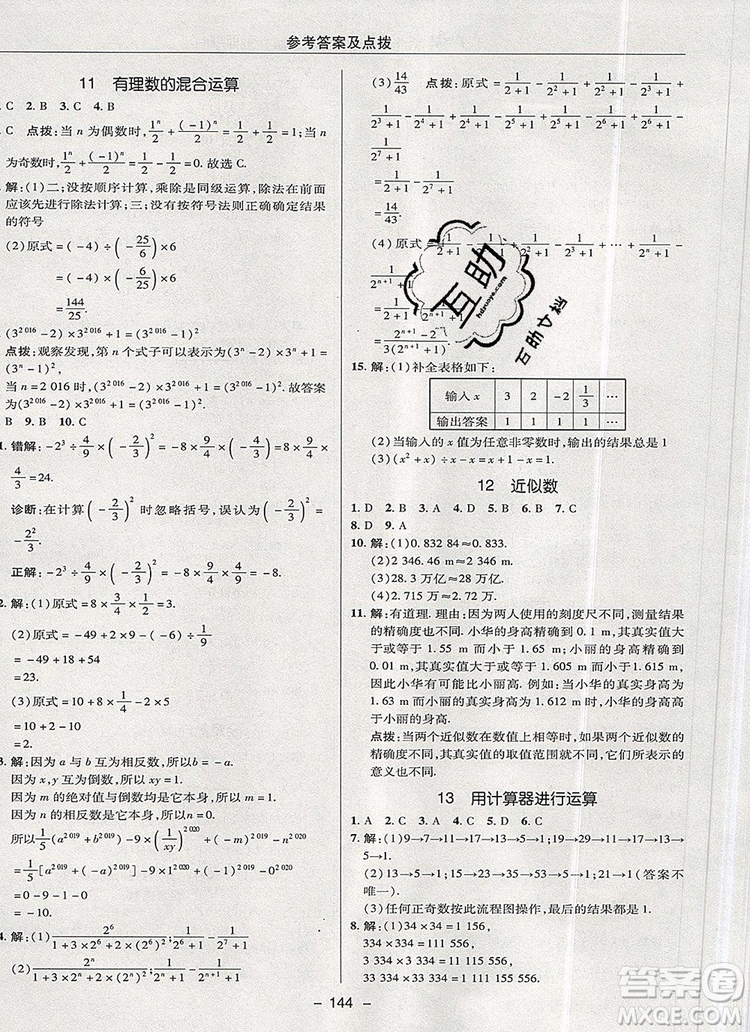 参考答案及点拨
11 有理数的混合运算
. C 2. B 3. C 4. B
. C 点拨:当 n 为偶数时,1ⁿ/2+(-1)ⁿ/2=1/2+1/2=1;当 n
为奇数时,1ⁿ/2+(-1)ⁿ/2=0. 故选 C.
解:(1)二;没按顺序计算,乘除是同级运算,除法在前面
应该先进行除法计算;三;没有按符号法则正确确定结果
的符号
(2)原式=(-4)÷(-25/6)×6
=(-4)×(-6/25)×6
=144/25.
(3^2 016-2)×3^2 016+1=(3^2 016-1)²
点拨:观察发现,第 n 个式子可以表示为(3ⁿ-2)×3ⁿ+
当 n=2 016 时,(3^2 016-2)×3^2 016+1=(3^2 016-1)²,故答案
为(3^2 016-2)×3^2 016+1=(3^2 016-1)².
B 9. B 10. C
1. 错解:-2³÷4/9×(-2/3)²=-8×9/4×(-4/9)=-8×9/4×
(-4/3)=24.
诊断:在计算(-2/3)²时忽略括号,与-2²/3
-2²/3.
正解:-2³÷4/9×(-2/3)²=-8×9/4×4/9=-8.
2. 解:(1)原式=8×3/4×1/2=3.
(2)原式=-49+2×9-(-6)÷1/9
=-49+18+54
=23.
(3)原式=10+8×1/4-2×5
=10+2-10
=2.
3. 解:因为 a 与 b 互为相反数,所以 a=-b.
因为 x,y 互为倒数,所以 xy=1.
因为 m 的绝对值与倒数均是它本身,所以 m=1.
因为 n 的相反数是它本身,所以 n=0.
所以1/5(a^2 019+b^2 019)-9×(1/xy)^2 020+m^2 020
=1/5[a^2 019+(-a)^2 019]-9×1^2 020+1^2 020
=0-9+1
=-8.
4. 解:(1)2^6/(1+3×2^6+2×(2^6)²)=1/(2^6+1)-1/(2^7+1)
(2)2ⁿ/(1+3×2ⁿ+2×(2ⁿ)²)=1/(2ⁿ+1)-1/(2ⁿ⁺¹+1)
(3)14/43 点拨:原式=1/(2+1)-1/(2²+1)+1/(2²+1)-
1/(2³+1)+1/(2³+1)-1/(2⁴+1)+1/(2⁴+1)-1/(2⁵+1)+1/(2⁵+1)-1/(2⁶+1)+1/(2⁶+1)-1/(2⁷+1)
=1/(2+1)-1/(2⁷+1)
=14/43.
(4)原式=1/(2+1)-1/(2²+1)+1/(2²+1)-1/(2³+1)+…+1/(2ⁿ+1)-
1/(2ⁿ⁺¹+1)
=1/(2+1)-1/(2ⁿ⁺¹+1)
=(2ⁿ⁺¹-2)/(3(2ⁿ⁺¹+1)).
15. 解:(1)补全表格如下:
输入 x 3 2 -2 1/3 …
输出答案 1 1 1 1 …
(2)当输入的 x 值为任意非零数时,输出的结果总是 1
(3)(x²+x)÷x-x=x+1-x=1
12 近似数
1. D 2. B 3. A 4. D 5. B 6. B 7. C
8. D 9. A
10. 解:(1)0. 832 84≈0. 833.
(2)2 346. 46≈2 346.
(3)28. 3 万亿≈28 万亿.
(4)2. 715 万≈2. 72 万.
11. 解:有道理. 理由:因为两人使用的刻度尺不同,测量结果
的精确度也不同. 小华的身高精确到 0. 1 m,其真实值大
于或等于 1. 55 m 而小于 1. 65 m;小丽的身高精确到
0. 01 m,其真实值大于或等于 1. 595 m 而小于 1. 605 m,
所以可能小华比小丽高. 例如,当小华的真实身高为
1. 63 m 而小丽的真实身高为 1. 60 m 时,小华的真实身
高大于小丽的身高.
点拨:当两个近似数在数值上相等时,如果两个近似数的
精确度不同,那么其真实值的取值范围就不同,所表示的
意义也不同.
13 用计算器进行运算
1. A 2. C 3. C 4. A 5. D 6. C
7. 解:(1)9→7→11→17→13→5→1;19→11→17→13→
5→1.
(2)12→15→23→35→53→5→1;21→1 (答案不
唯一).
(3)任何正奇数按此流程图操作,最后结果都为 1.
8. 解:(1)34×34=1 156;
334×334=111 556;
3 334×3 334=11 115 556;
33 334×33 334=1 111 155 556.
- 144 -
互助
hdzuoye.com
答案圈
MXQE.COM